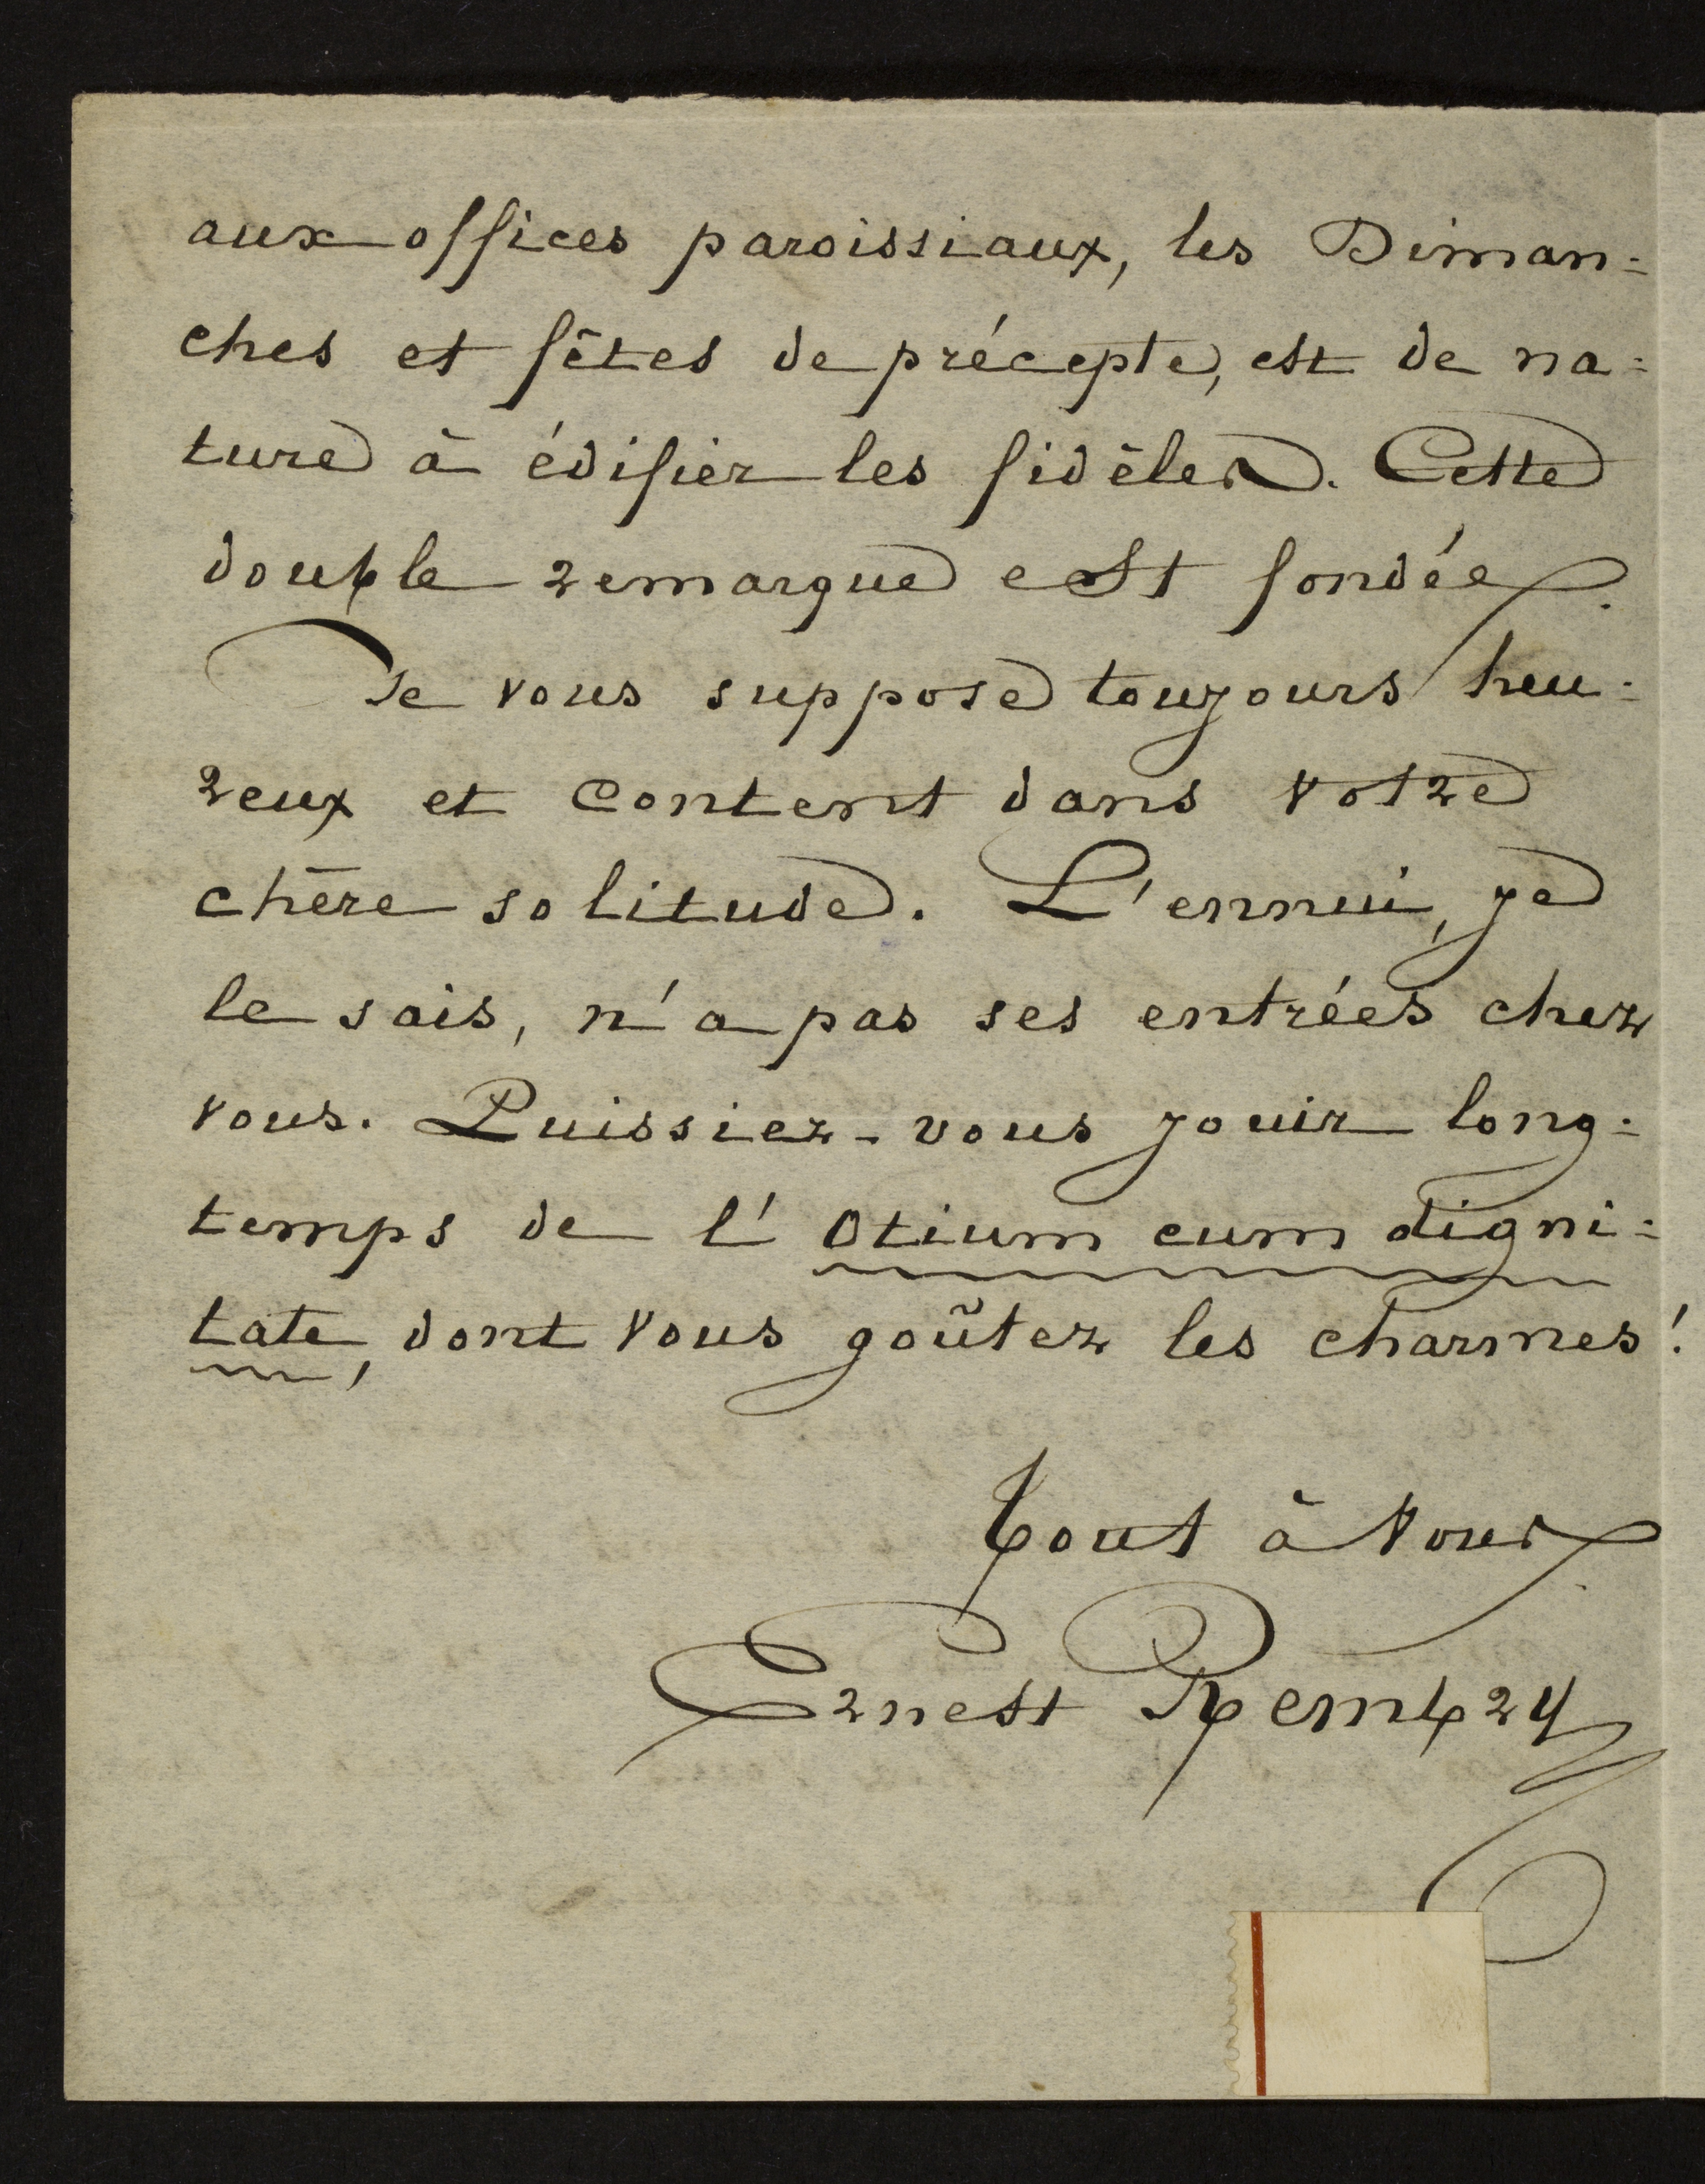 aux offices paroissiaux, les Diman=
ches et fêtes de précepte, est de na=
ture à édifier les fidèles. Cette
double remarque est fondée.
Je vous suppose toujours heu=
reux et content dans votre
chère solitude. L'ennui, je
le sais, n'a pas ses entrées chez
vous. Puissiez-vous jouir long=
temps de l'Otium cum digni=
tate, dont vous goûtez les charmes!
Tout à vous.
Ernest Rembry